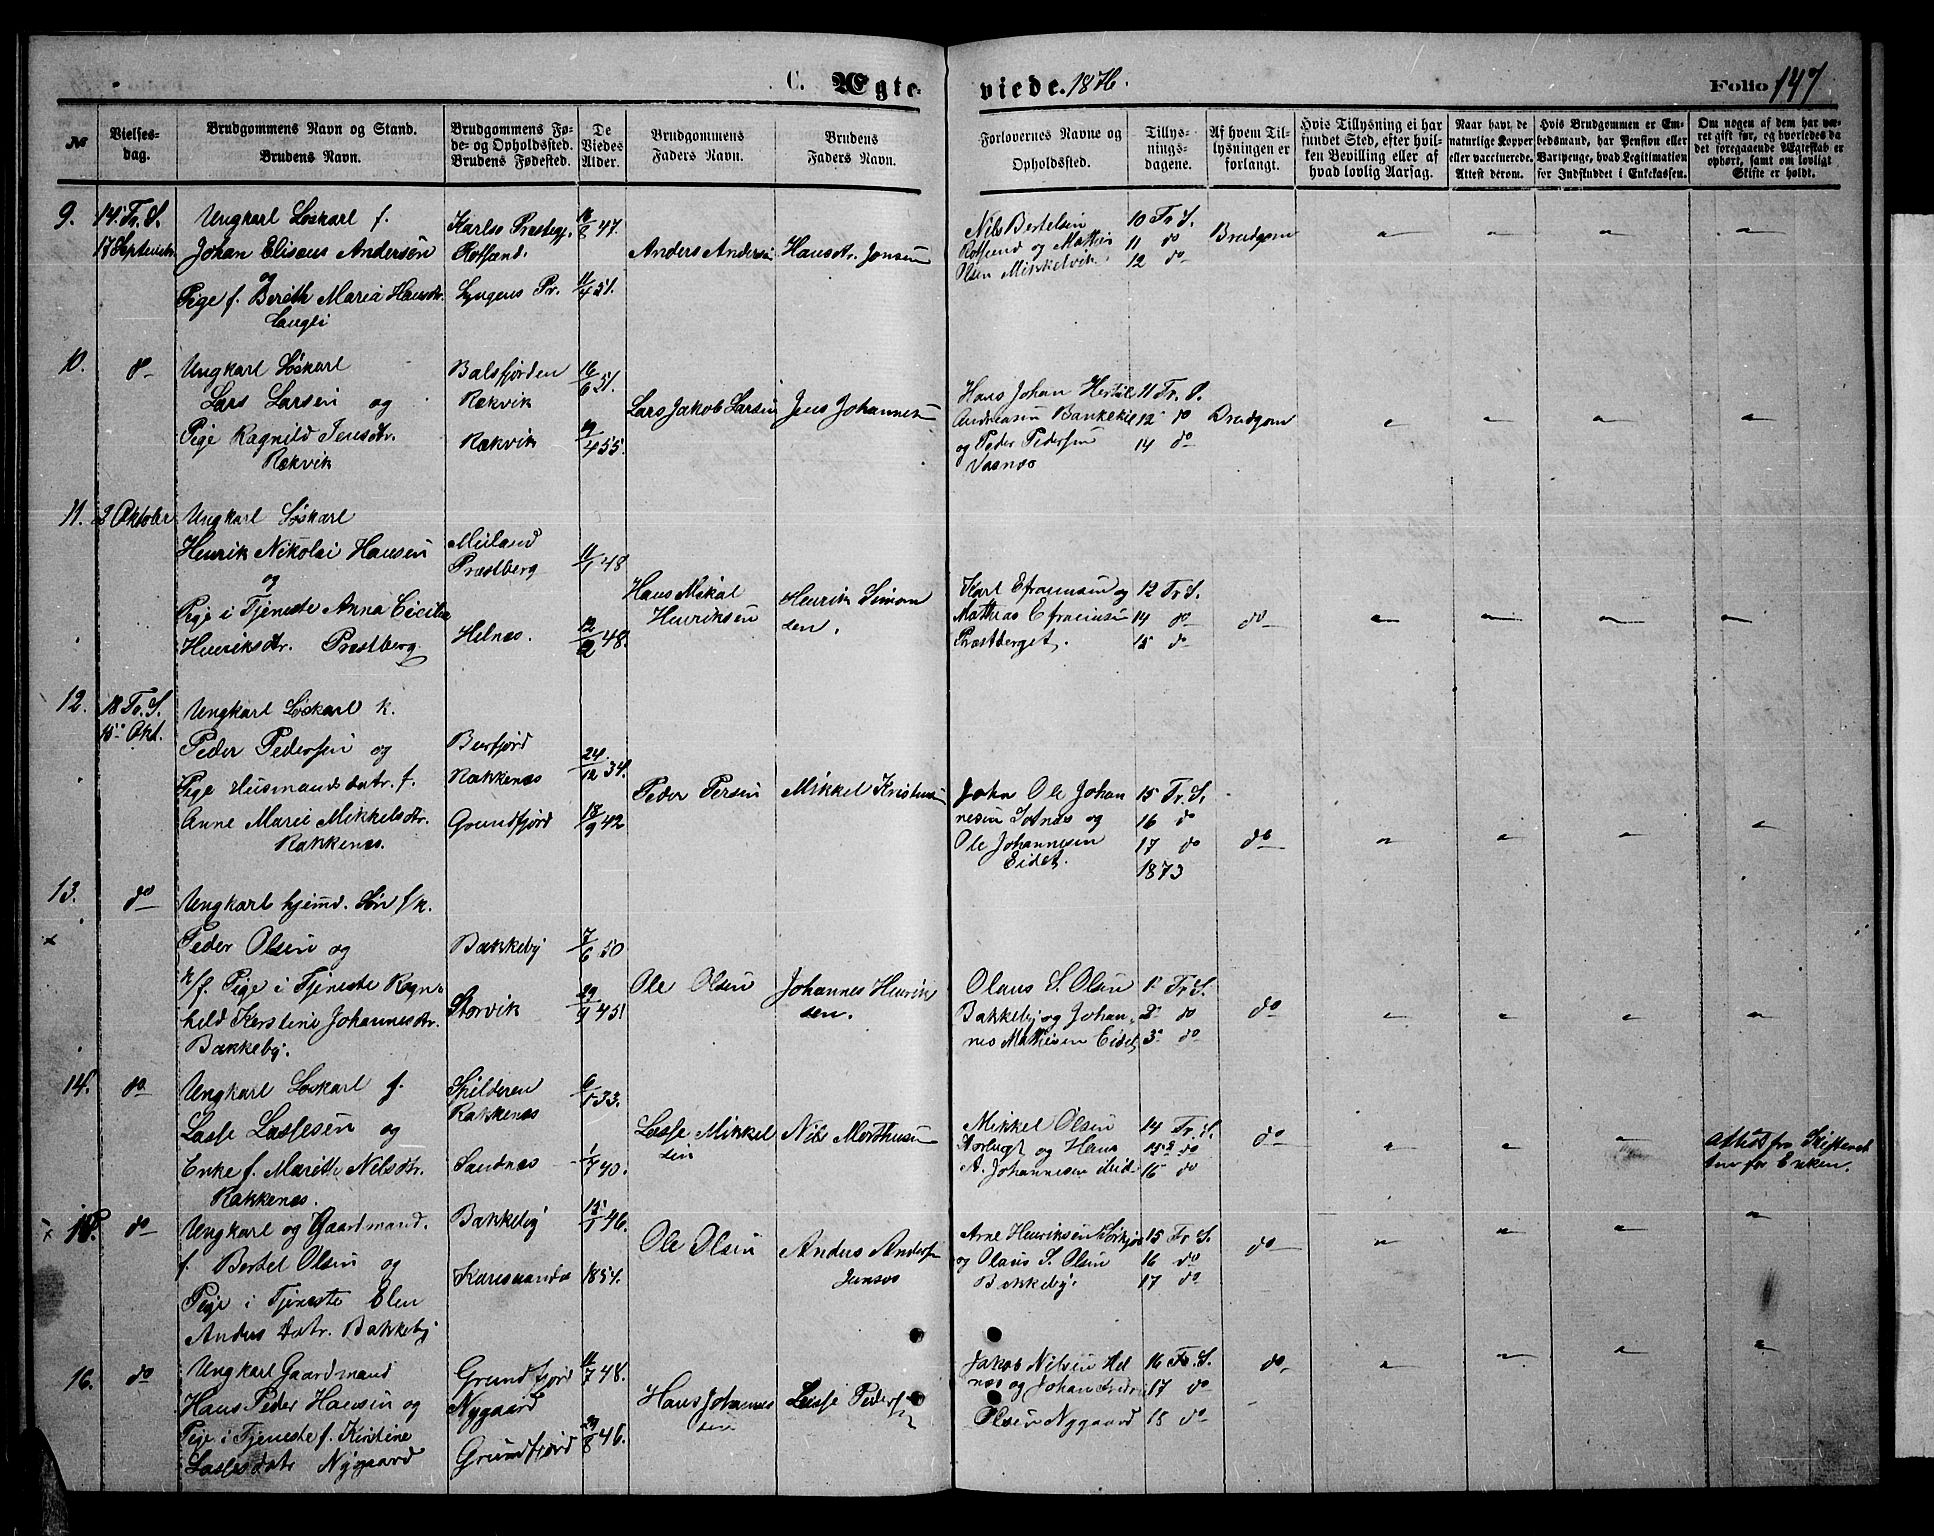 C. Ægte viede. 1876. Folio 147
№
Vielses-
dag.
Brudgommens Navn og Stand.
Brudens Navn.
Brudgommens Fø-
de- og Opholdssted.
Brudens Fødested.
De
Viedes
Alder.
Brudgommens
Faders Navn.
Brudens
Faders Navn.
Forlovernes Navne og
Opholdssted.
Tillys-
nings-
dagene.
Af hvem Til-
lysningen er
forlangt.
Hvis Tillysning ei har
fundet Sted, efter hvil-
ken Bevilling eller af
hvad lovlig Aarsag.
Naar havt de
naturlige Kopper
eller vaccinerede.
Attest derom.
Hvis Brudgommen er Em-
bedsmand, har Pension eller
Vartpenge, hvad Legitimation
for Indskuddet i Enkekassen.
Om nogen af dem har væ-
ret gift før, og hvorledes da
det foregaaende Ægteskab er
ophørt, samt om lovligt
Skifte er holdt.
9.
14 Tr. S.
17 Septembr.
Ungkarl Løskarl f.
Johan Elisæus Andersen
og
Pige f. Berith Maria Hansdtr.
Langli
Karlsø Præstegj.
Rotsund.
Lyngens Pr.
47.
11/4 51.
Anders Andersen
Hans Jonsen
Nils Bertelsen
Rotsund og Mathis
Olsen Mikkelvik
10 Tr. S.
11 do
12 do
Brudgom
10.
do
Ungkarl Løskarl
Lars Larsen og
Pige Ragnild Jensdtr.
Rækvik
Balsfjorden
Rækvik
Rækvik
16/6 51.
/4 55.
Lars Jakob Larsen
Jens Johannesen
Hans Johan Hertil
Andreasen Bankekie
og Peder Pedersen
Vasnæs
11 Tr. S.
12 do
14 do
Brudgom
11.
2 Oktober
Ungkarl Løskarl
Henrik Nikolai Hansen
og
Pige i Tjeneste Anna Cicilia
Henriksdtr. Præstberg
Meiland
Præstberg
Helnæs.
11/1 48
12/2 48.
Hans Mikal
Henriksen
Henrik Simon
sen.
Karl Efraimsen og
Mathias Efraimsen
Præstberget.
12 Tr. S.
14 do
15 do
do
12.
18 Tr. S.
15 Okt.
Ungkarl Løskarl k.
Peder Pedersen og
Pige Husmandsdatr. f.
Anne Marie Mikkelsdtr.
Rakkenæs.
Burfjord
Rakkenæs
Grundfjord
24/12 34.
18/9 42
Peder Persen
Mikkel Kristensen
John Ole Johan
nesen og
Ole Johannesen
Eidet.
15 Tr. S.
16 do
17 do
1873
do
13.
do
Ungkarl hjemd. Søn f/k.
Peder Olsen og
k/f. Pige i Tjeneste Ragn-
hild Kerstine Johannesdtr.
Bakkeby.
Bakkeby
Storvik
7/6 50
29/9 45
Ole Olsen
Johannes Henrik
sen.
Olaus S. Olsen
Bakkeby og Johan-
nes Mathisen Eidet
1 Tr. S.
2 do
3 do
do
14.
do
Ungkarl Løskarl f.
Lasse Lassesen og
Enke f. Marith Nilsdtr.
Rakkenæs.
Spilderen
Rakkenæs
Sandnæs
6/1 33.
1/7 40.
Lasse Mikkel
sen
Nils Morthensen
Mikkel Olsen
Storbugt og Hans
A. Johannesen ibid.
14 Tr. S.
15 do
16 do
do
Attest fra Skifteret
ten for Enken.
15.
do
Ungkarl og Gaardmand.
f. Bertel Olsen og
Pige i Tjeneste Elen
Anders Datr. Bakkeby
Bakkeby
Karesuando
15/1 46.
1854.
Ole Olsen
Anders Anders
Arne Henriksen Sørkjos
og Olaus S. Olsen
Bakkeby.
15 Tr. S.
16 do
17 do
do
16.
do
Ungkarl Gaardmand
Hans Peder Hansen og
Pige i Tjeneste f. Kirstine
Lassesdatr Nygaard
Grundfjord
Nygaard
Grundfjord
11/7 48.
29/8 46.
Hans Johannes
sen
Lasse Peders
Jakob Nilsen Hel
næs og Johan
Olsen Nygaard
16 Tr. S.
17 do
18 do
do.